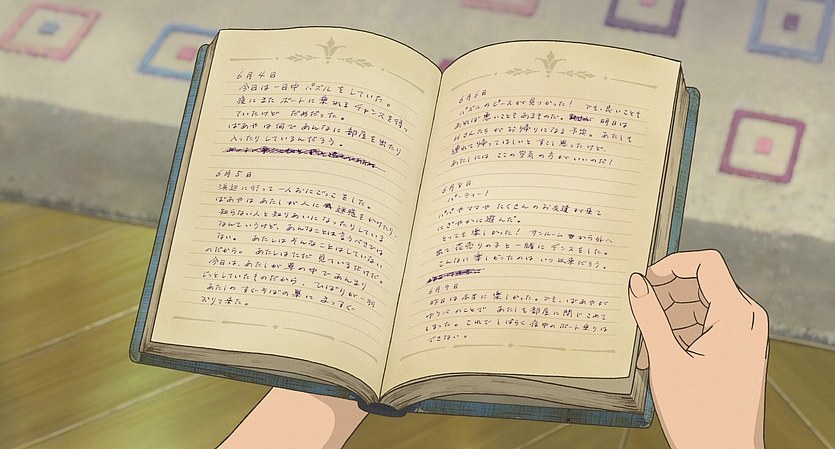 6月4日
今日は一日中パズルをしていた。
夜にまたボートに乗れるチャンスを待っ
ていたけど だめだった。
ばあやは何であんなに部屋を出たり
入ったりしているんだろう。
6月5日
浜辺に行って一人おにごっこをした。
ばあやはあたしが人に迷惑をかけたり、
知らない人と知りあいになったりしていま
なんていうけど、あんなことは言うべきでは
ない。 あたしはそんなことはしていない
のだから。 あたしはただ 見ているだけだ。
今日は、あたしが草の中であんまり
じっとしていたものだから、ひばりが一羽
あたしのすぐそばの巣に まっすぐ
おりて来た。
6月6日
パズルのピースが見つかった! でも、良いことも
あれば悪いこともあるものだ。 明日は
さんたちが お帰りになる予定。 あたしも
連れて帰ってほしいとすこし思ったけど、
あたしには ここの空気の方がいいのだ!
6月8日
パーティー!
パパやママや たくさんのお友達が来て
にぎやかに遊んだ。
とっても楽しかった! サンルームから外へ
出て花売りの子と一緒にダンスをした。
こんなに楽しかったのは いつ以来だろう。
6月9日
昨日は本当に楽しかった。でも、ばあやが
ゆうべのことで あたしを部屋に閉じこめて
しまった。これで しばらく夜中のボート乗りは
できない。